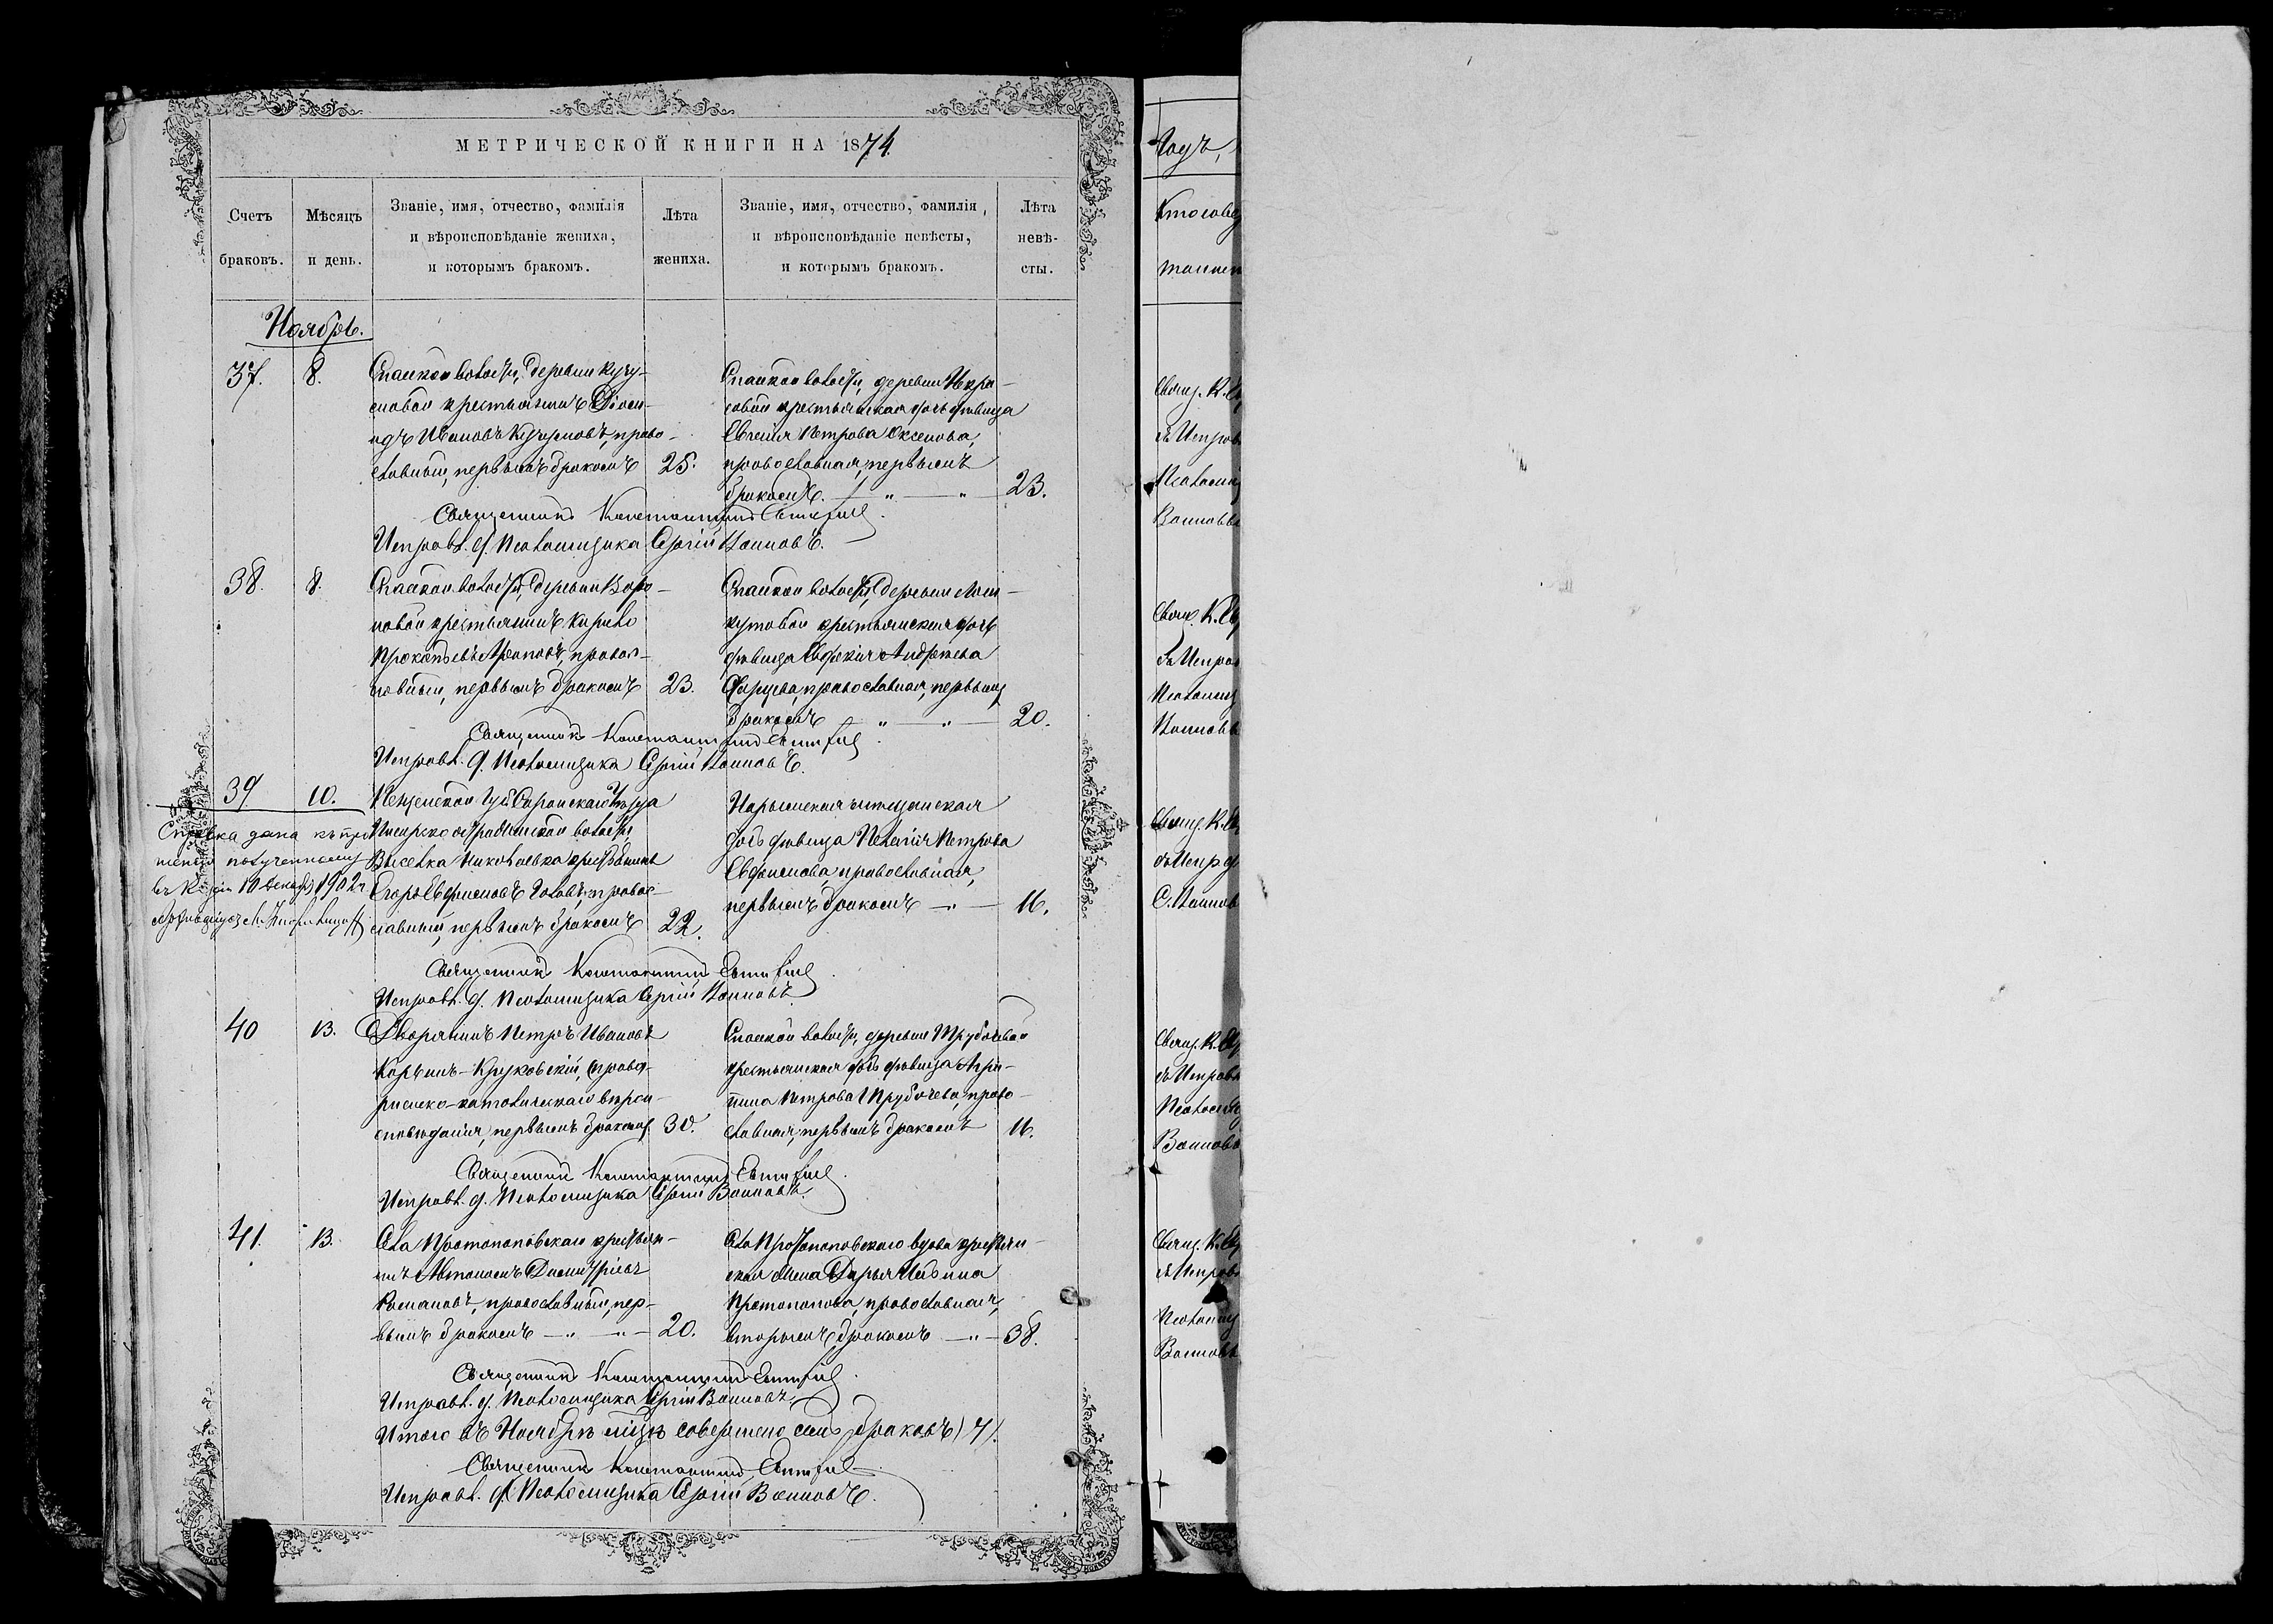 МЕТРИЧЕСКОЙ КНИГИ НА 1874.
Счетъ браковъ.
Мѣсяцъ и день.
Званіе, имя, отчество, фамилія
и вѣроисповѣданіе жениха,
и которымъ бракомъ.
Лѣта
жениха.
Званіе, имя, отчество, фамилія,
и вѣроисповѣданіе невѣсты,
и которымъ бракомъ.
Лѣта
невѣ-
сты.
Ноябрь.
37. 8.
Спаской волости, деревни Кучу-
мовой крестьянинъ Діоми-
дъ Ивановъ Кучумовъ, право-
славный, первымъ бракомъ 25.
Спаской волости, деревни Некра-
совой крестьянская дочь дѣвица
Евгенія Петрова Аксенова,
православная, первымъ
бракомъ. 23.
Священникъ Константинъ
Исправл. д. Псаломщика Сергій Воиновъ.
38. 8.
Спаской волости, деревни Воро-
новой крестьянинъ Кирило
Прокопьевъ Араповъ, правос-
лавный, первымъ бракомъ 23.
Спаской волости, деревни
крестьянская дочь
дѣвица Евдокія Андреева
православная, первымъ
бракомъ 20.
Священникъ Константинъ
Исправл. д. Псаломщика Сергій Воиновъ.
39 10.
Пензенской Губ. Саранскаго Уѣзда
волости,
Выселка Николаевка крестьянинъ
Егоръ Евфимовъ Головъ, правос-
лавный, первымъ бракомъ 22.
Нарымская мѣщанская
дочь дѣвица Пелагія Петрова
Евфимова, православная,
первымъ бракомъ 16.
Справка дана къ про
шенію полученному
10 Декабря 1902 г.
Священникъ Константинъ
Исправл. д. Псаломщика Сергій Воиновъ.
40 13.
Дворянинъ Петръ Ивановъ
Корвинъ-Круковскій,
римско-католическаго вѣрои-
сповѣданія, первымъ бракомъ 30.
Спаской волости, деревни Трубачевой
крестьянская дочь дѣвица Агри-
пина Петрова Трубачева, право-
славная, первымъ бракомъ 16.
Священникъ Константинъ
Исправл. д. Псаломщика Сергій Воиновъ.
41. 13.
Села Протопоповскаго крестьян-
инъ Автономъ Димитріевъ
Романовъ, православный, пер-
вымъ бракомъ 20.
Села Протопоповскаго вдова крестьян-
ская жена Дарья Ильина
Протопопова, православная,
вторымъ бракомъ 38.
Священникъ Константинъ
Исправл. д. Псаломщика Сергій Воиновъ.
Итого въ Ноябрѣ мѣсяцѣ совершено семь браковъ (7).
Священникъ Константинъ
Исправл. д. Псаломщика Сергій Воиновъ.